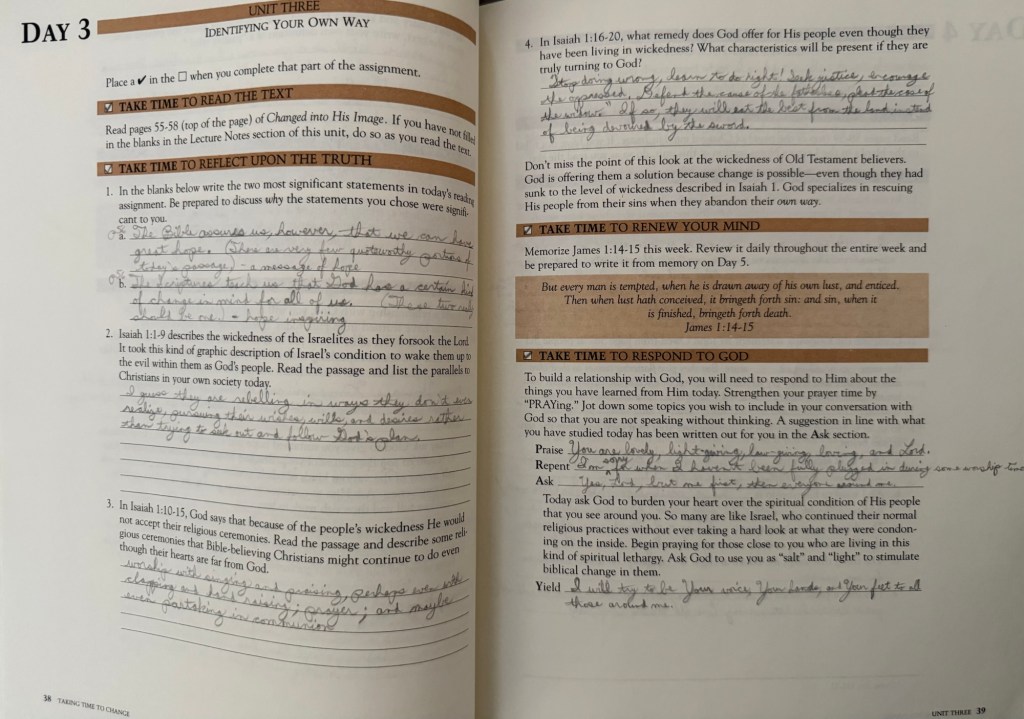 DAY 3
UNIT THREE
IDENTIFYING YOUR OWN WAY
Place a ✔ in the ☐ when you complete that part of the assignment.
☑ TAKE TIME TO READ THE TEXT
Read pages 55-58 (top of the page) of Changed into His Image. If you have not filled
in the blanks in the Lecture Notes section of this unit, do so as you read the text.
☑ TAKE TIME TO REFLECT UPON THE TRUTH
1. In the blanks below write the two most significant statements in today's reading
assignment. Be prepared to discuss why the statements you chose were signifi-
cant to you.
a. The Bible assures us, however, that we can have
great hope. (There are very few quoteworthy portions of
today's passage) - a message of hope
b. The Scriptures teach us that God has a certain kind
of change in mind for all of us. (These two really
should be one) - hope inspiring
2. Isaiah 1:1-9 describes the wickedness of the Israelites as they forsook the Lord.
It took this kind of graphic description of Israel's condition to wake them up to
the evil within them as God's people. Read the passage and list the parallels to
Christians in your own society today.
I guess they are rebelling in ways they don't even
realize, pursuing their wishes, wills, and desires rather
than trying to seek out and follow God's plan.
3. In Isaiah 1:10-15, God says that because of the people's wickedness He would
not accept their religious ceremonies. Read the passage and describe some reli-
gious ceremonies that Bible-believing Christians might continue to do even
though their hearts are far from God.
worship with singing and praising, perhaps even with
clapping and hand raising; prayer; and maybe
even partaking in communion
38 TAKING TIME TO CHANGE
4. In Isaiah 1:16-20, what remedy does God offer for His people even though they
have been living in wickedness? What characteristics will be present if they are
truly turning to God?
"Stop doing wrong, learn to do right! Seek justice, encourage
the oppressed. Defend the cause of the fatherless, plead the case of
the widow." If so, they will eat the best from the land instead
of being devoured by the sword.
Don't miss the point of this look at the wickedness of Old Testament believers.
God is offering them a solution because change is possible—even though they had
sunk to the level of wickedness described in Isaiah 1. God specializes in rescuing
His people from their sins when they abandon their own way.
☑ TAKE TIME TO RENEW YOUR MIND
Memorize James 1:14-15 this week. Review it daily throughout the entire week and
be prepared to write it from memory on Day 5.
But every man is tempted, when he is drawn away of his own lust, and enticed.
Then when lust hath conceived, it bringeth forth sin: and sin, when it
is finished, bringeth forth death.
James 1:14-15
☑ TAKE TIME TO RESPOND TO GOD
To build a relationship with God, you will need to respond to Him about the
things you have learned from Him today. Strengthen your prayer time by
"PRAYing." Jot down some topics you wish to include in your conversation with
God so that you are not speaking without thinking. A suggestion in line with what
you have studied today has been written out for you in the Ask section.
Praise You are lovely, light-giving, law-giving, loving, and Lord.
Repent I'm sorry for when I haven't been fully plugged in during some worship times
Ask Yes, Lord, burt me first, then everyone around me.
Today ask God to burden your heart over the spiritual condition of His people
that you see around you. So many are like Israel, who continued their normal
religious practices without ever taking a hard look at what they were condon-
ing on the inside. Begin praying for those close to you who are living in this
kind of spiritual lethargy. Ask God to use you as "salt" and "light" to stimulate
biblical change in them.
Yield I will try to be Your voice, Your hands, and Your feet to all
those around me.
UNIT THREE 39